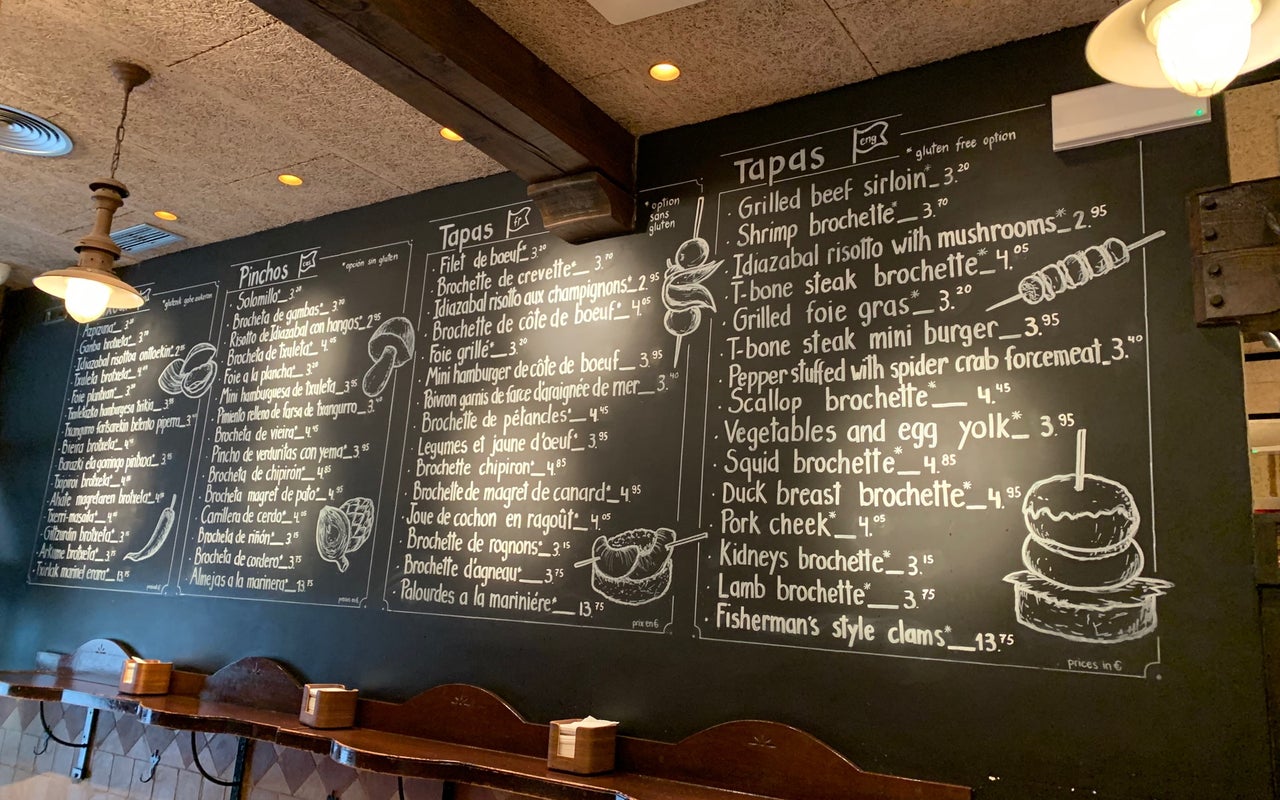 * gaberik gabe aukeran
Azpizuna_3.20
Ganba brotxeta*_3.70
Idiazabal risottoa onttoekin*2.95
Txuleta brotxeta*_4.05
Foie plantxan*_3.20
Txuletazko hanburgesa txikia_3.95
Txangurro fartsarekin betetako piperra_3.40
Bieira brotxeta*_4.45
Barazki eta gorringo pintxoa*_3.95
Txipiroi brotxeta*_4.85
Ahate magretaren brotxeta*_4.95
Txerri-masaila*_4.05
Giltzurdin brotxeta*_3.15
Arkume brotxeta*_3.75
Txirlak marinel erara*_13.75
Pinchos
* opción sin gluten
Solomillo*_3.20
Brocheta de gambas*_3.70
Risotto de Idiazabal con hongos*_2.95
Brocheta de txuleta*_4.05
Foie a la plancha*_3.20
Mini hamburguesa de txuleta_3.95
Pimiento relleno de farsa de txangurro_3.40
Brocheta de vieira*_4.45
Pincho de verduritas con yema*_3.95
Brocheta de chipirón*_4.85
Brocheta magret de pato*_4.95
Carrillera de cerdo*_4.05
Brocheta de riñón*_3.15
Brocheta de cordero*_3.75
Almejas a la marinera*_13.75
precios en €
Tapas fr
* option
sans
gluten
Filet de boeuf*_3.20
Brochette de crevette*_3.70
Idiazabal risotto aux champignons*_2.95
Brochette de côte de boeuf*_4.05
Foie grillé*_3.20
Mini hamburger de côte de boeuf_3.95
Poivron garnis de farce d'araignée de mer_3.40
Brochette de pétancles*_4.45
Legumes et jaune d'oeuf*_3.95
Brochette chipiron*_4.85
Brochette de magret de canard*_4.95
Joue de cochon en ragoût*_4.05
Brochette de rognons*_3.15
Brochette d'agneau*_3.75
Palourdes a la mariniére*_13.75
prix en €
Tapas eng
* gluten free option
Grilled beef sirloin*_3.20
Shrimp brochette*_3.70
Idiazabal risotto with mushrooms*_2.95
T-bone steak brochette*_4.05
Grilled foie gras*_3.20
T-bone steak mini burger_3.95
Pepper stuffed with spider crab forcemeat_3.40
Scallop brochette*_4.45
Vegetables and egg yolk*_3.95
Squid brochette*_4.85
Duck breast brochette*_4.95
Pork cheek*_4.05
Kidneys brochette*_3.15
Lamb brochette*_3.75
Fisherman's style clams*_13.75
prices in €